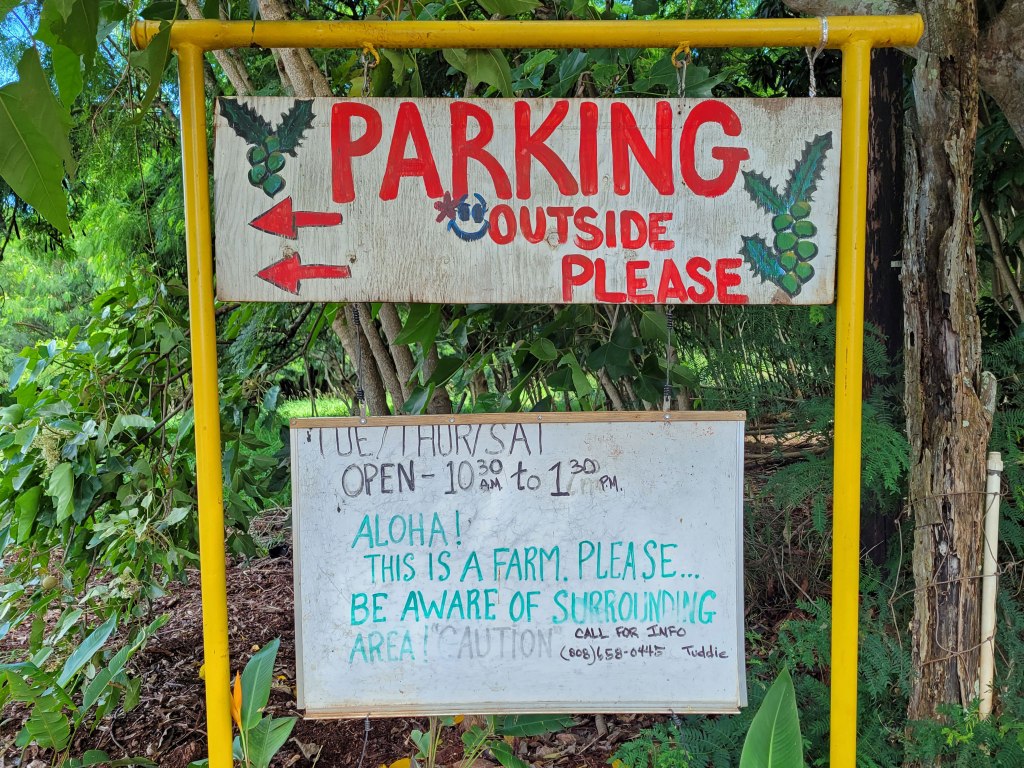 PARKING
OUTSIDE
PLEASE
TUE/THUR/SAT
OPEN - 10 30 AM to 1 30 PM.
ALOHA!
THIS IS A FARM. PLEASE...
BE AWARE OF SURROUNDING
AREA! "CAUTION"
CALL FOR INFO
(808) 658-0445 Tuddie